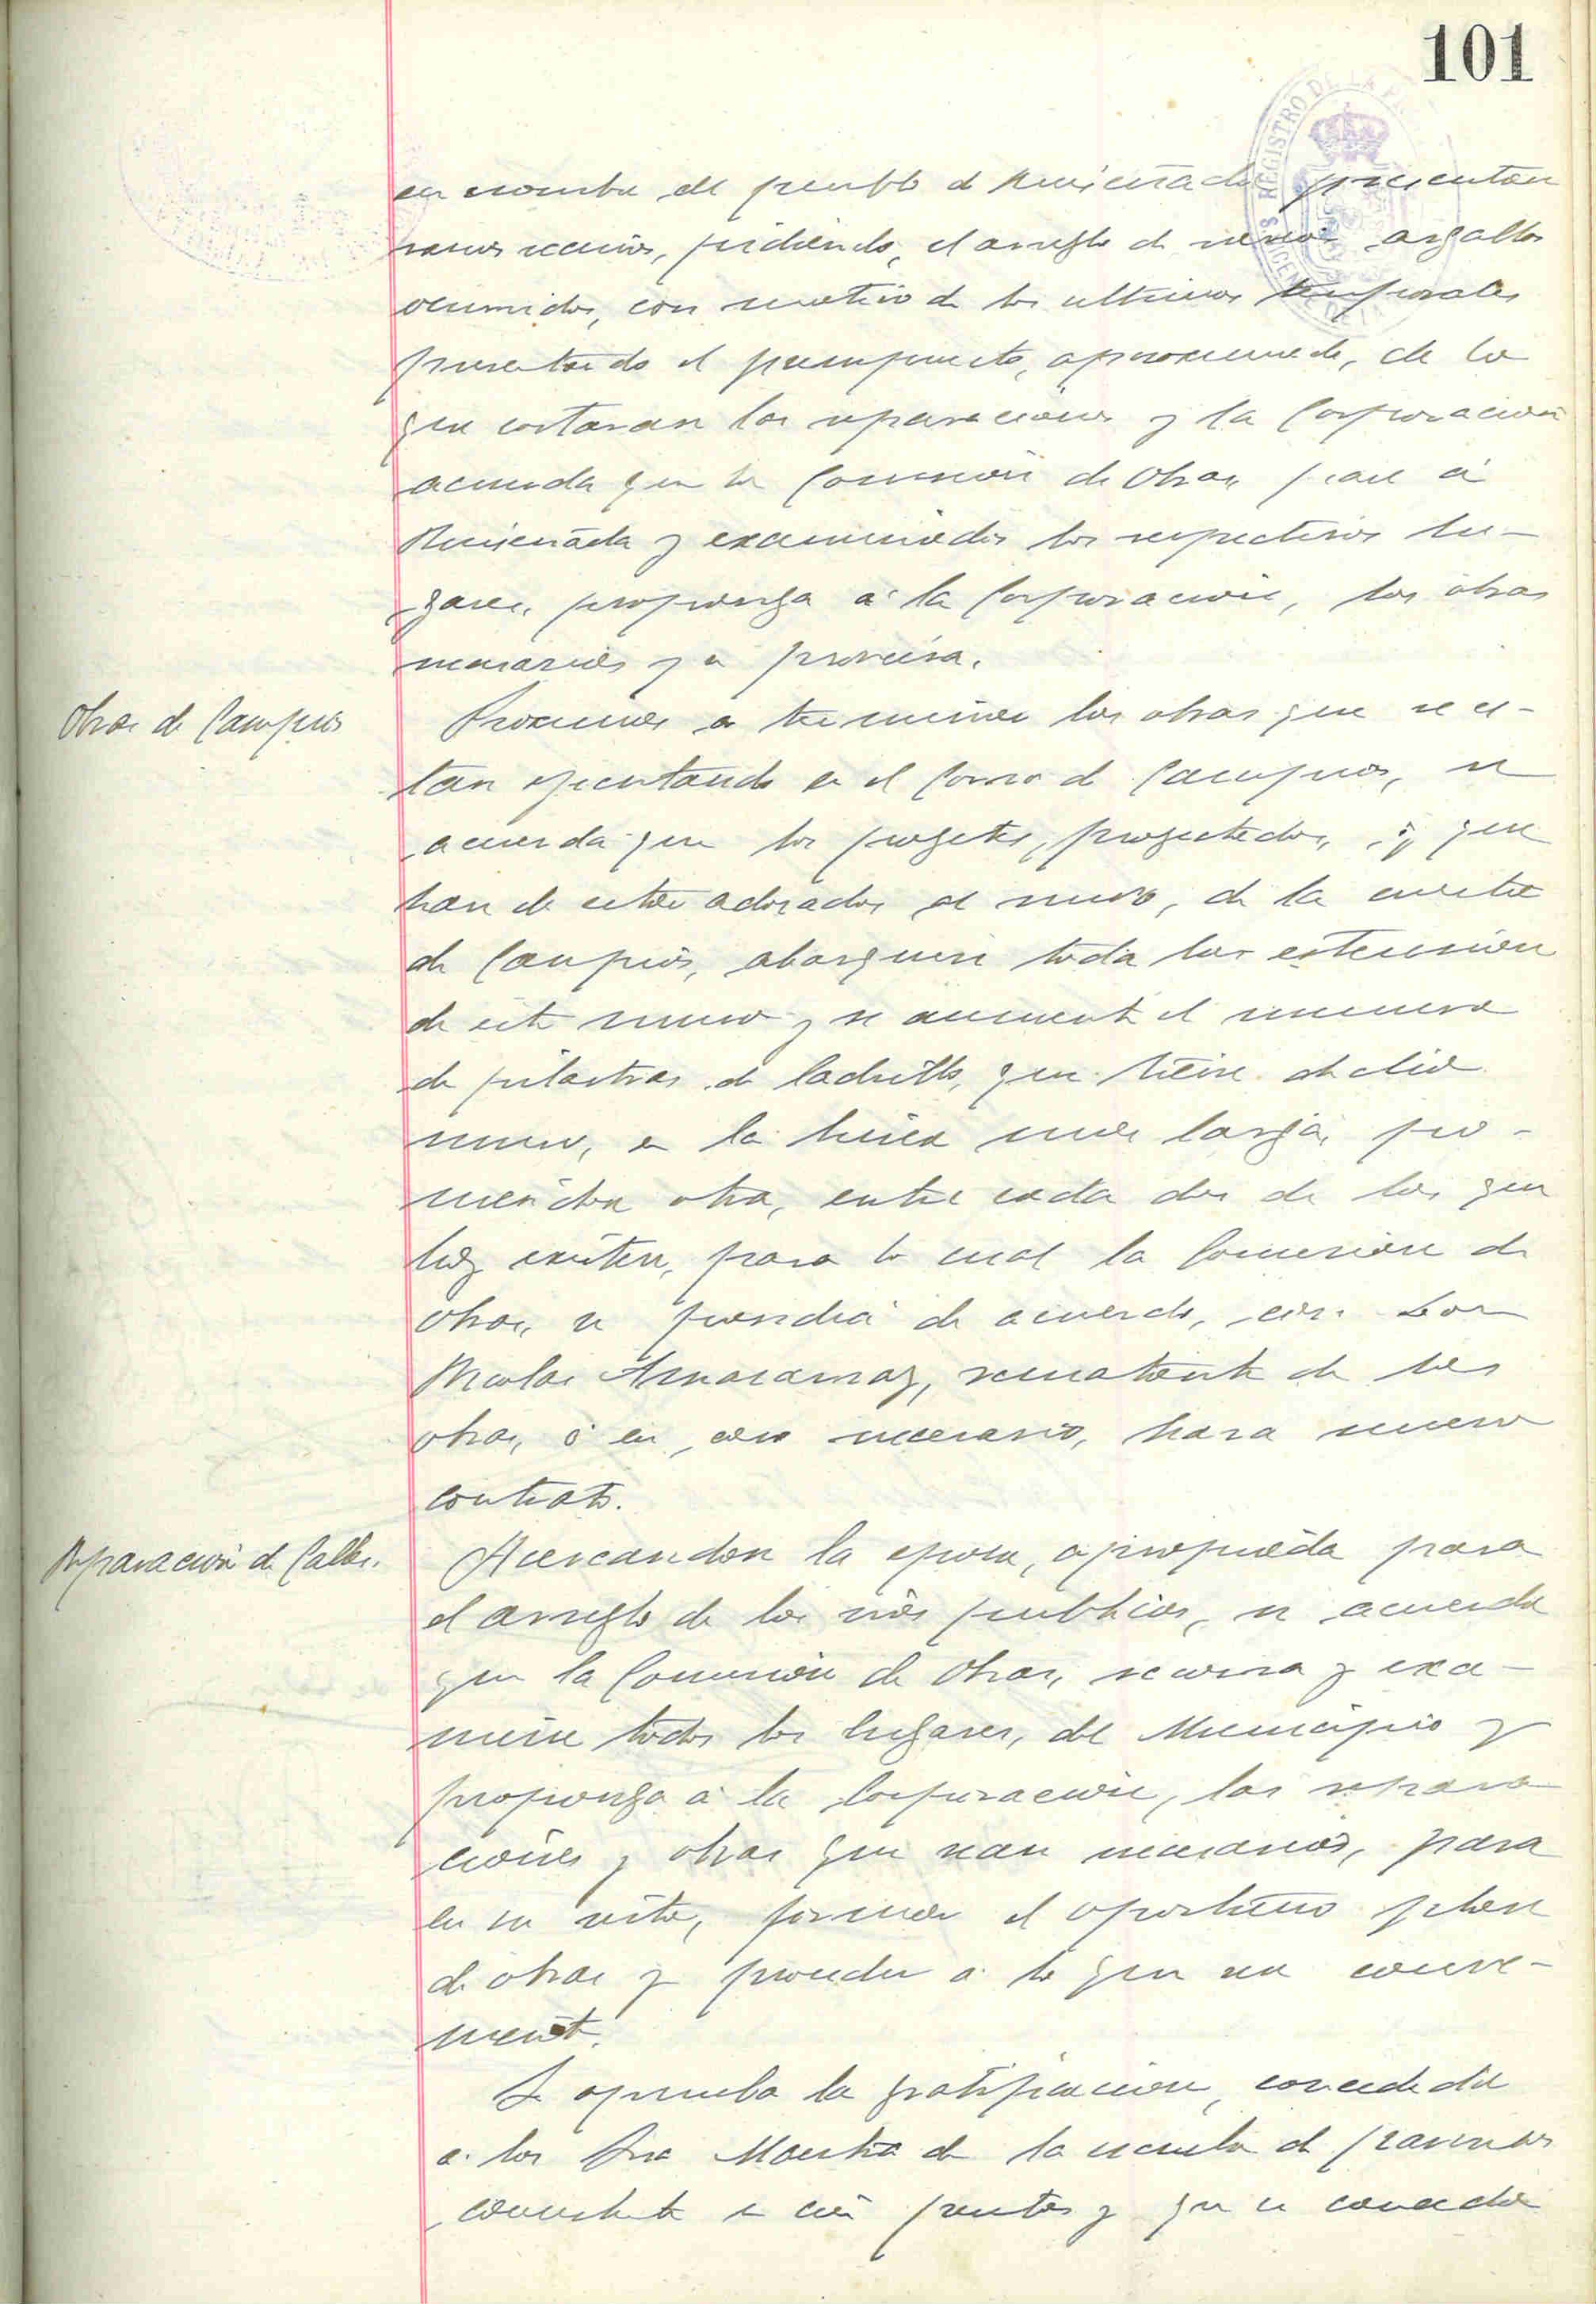 101
en nombre del pueblo de Ruiseñada presentan
varios vecinos, pidiendo, el arreglo de varios argallos
ocurridos, con motivo de los ultimos temporales
presentando el presupuesto, aproximado, de lo
que costaran las reparaciones y la Corporacion
acuerda que la Comision de Obras, pase á
Ruiseñada y examinados los respectivos lu-
gares, proponga á la Corporacion, las obras
necesarias y a precisa.
Obras de Campíos
Proximas a terminar las obras que se es-
tan ejecutando en el Corro de Campios, se
acuerda que los projetes, proyectados, y que
han de estar adosados al muro, de la cuesta
de Campios, abarquen toda la estension
de este muro y se aumente el numero
de pilastras de ladrillo, que tiene dicho
muro, en la linea mas larga, po-
niendose otra, entre cada dos de las que
hoy existen, para lo cual la Comision de
Obras, se pondrá de acuerdo, con Don
Nicolas Arnaramaz, rematante de las
obras, ó en caso necesario, hara nuevo
contrato.
Reparación de Calles.
Acercandose la epoca, apropiada para
el arreglo de las vias publicas, se acuerda
que la Comision de Obras, recorra y exa-
mine todos los lugares, del Municipio y
proponga á la Corporacion, las repara
ciones y obras que sean necesarias, para
en su vista, formar el oportuno plan
de obras y proceder a lo que sea conve-
niente.
Se aprueba la gratificacion, concedida
a la Sra Maestra de la escuela de parvulos
consistente en cien pesetas y que se concedio